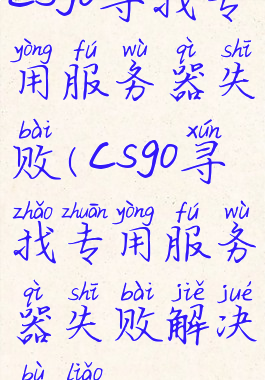 csgo寻找专
yòng fú wù qì shī
用服务器失
bài xún
败(csgo寻
zhǎo zhuān yòng fú wù
找专用服务
qì shī bài jiě jué
器失败解决
bù liǎo